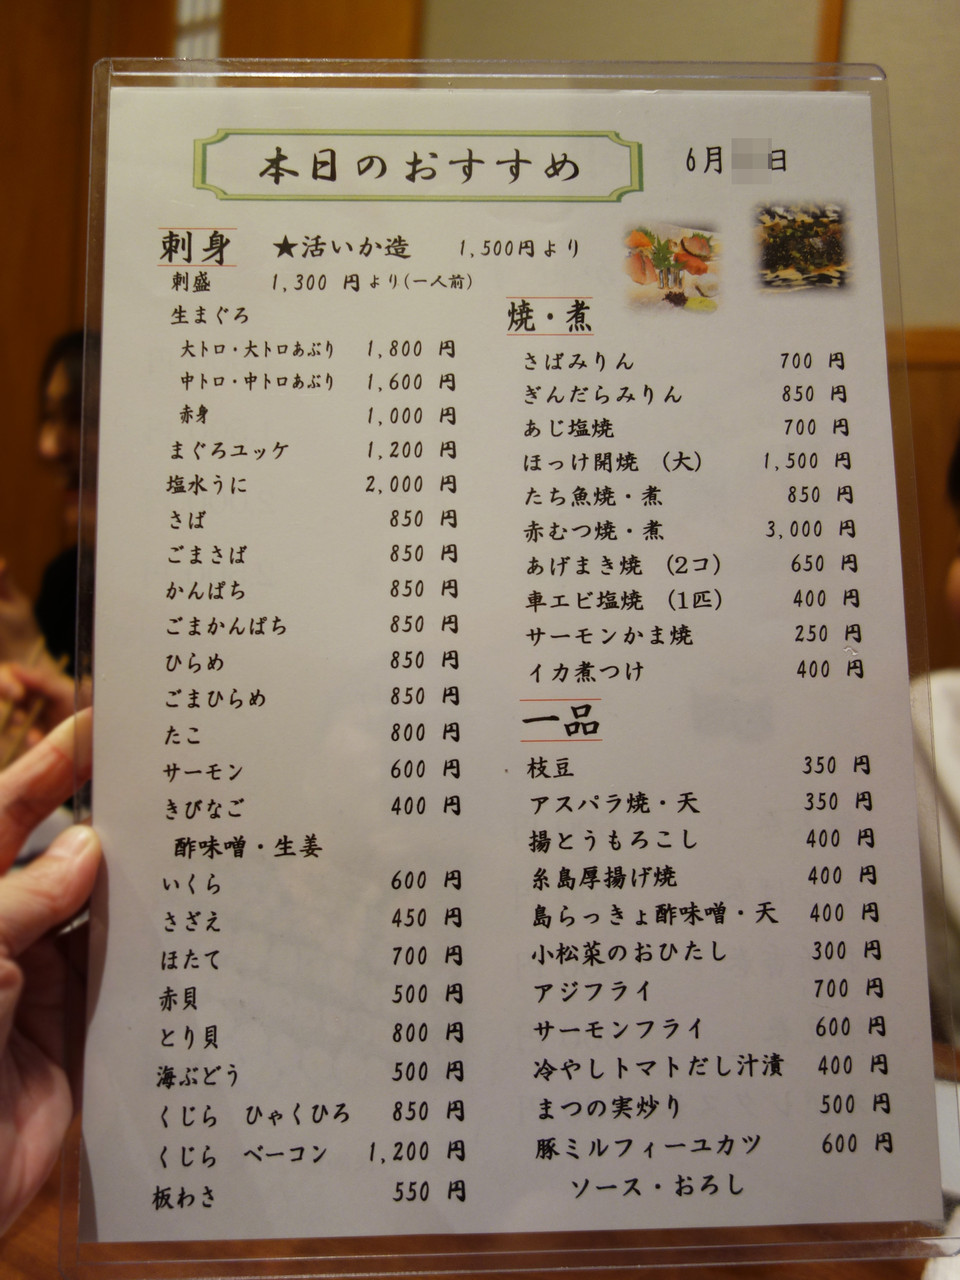 本日のおすすめ
6月 日
刺身 ★活いか造 1,500円より
刺盛 1,300 円より(一人前)
生まぐろ
大トロ・大トロあぶり 1,800 円
中トロ・中トロあぶり 1,600 円
赤身 1,000 円
まぐろユッケ 1,200 円
塩水うに 2,000 円
さば 850 円
ごまさば 850 円
かんぱち 850 円
ごまかんぱち 850 円
ひらめ 850 円
ごまひらめ 850 円
たこ 800 円
サーモン 600 円
きびなご 400 円
酢味噌・生姜
いくら 600 円
さざえ 450 円
ほたて 700 円
赤貝 500 円
とり貝 800 円
海ぶどう 500 円
くじら ひゃくひろ 850 円
くじら ベーコン 1,200 円
板わさ 550 円
焼・煮
さばみりん 700 円
ぎんだらみりん 850 円
あじ塩焼 700 円
ほっけ開焼 (大) 1,500 円
たち魚焼・煮 850 円
赤むつ焼・煮 3,000 円
あげまき焼 (2コ) 650 円
車エビ塩焼 (1匹) 400 円
サーモンかま焼 250 円
イカ煮つけ 400 円
一品
枝豆 350 円
アスパラ焼・天 350 円
揚とうもろこし 400 円
糸島厚揚げ焼 400 円
島らっきょ酢味噌・天 400 円
小松菜のおひたし 300 円
アジフライ 700 円
サーモンフライ 600 円
冷やしトマトだし汁漬 400 円
まつの実炒り 500 円
豚ミルフィーユカツ 600 円
ソース・おろし